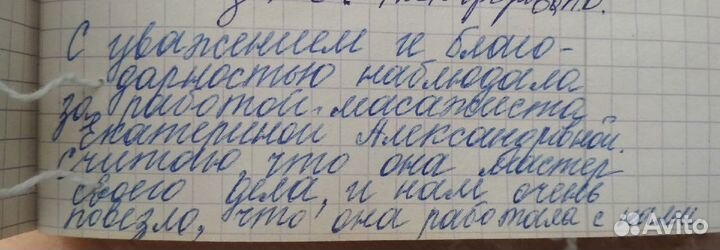 С уважением и благо-
дарностью наблюдала
за работой масажиста
Екатериной Александровной.
Считаю что она мастер
своего дела, и нам очень
повезло, что она работала с нами
Avito